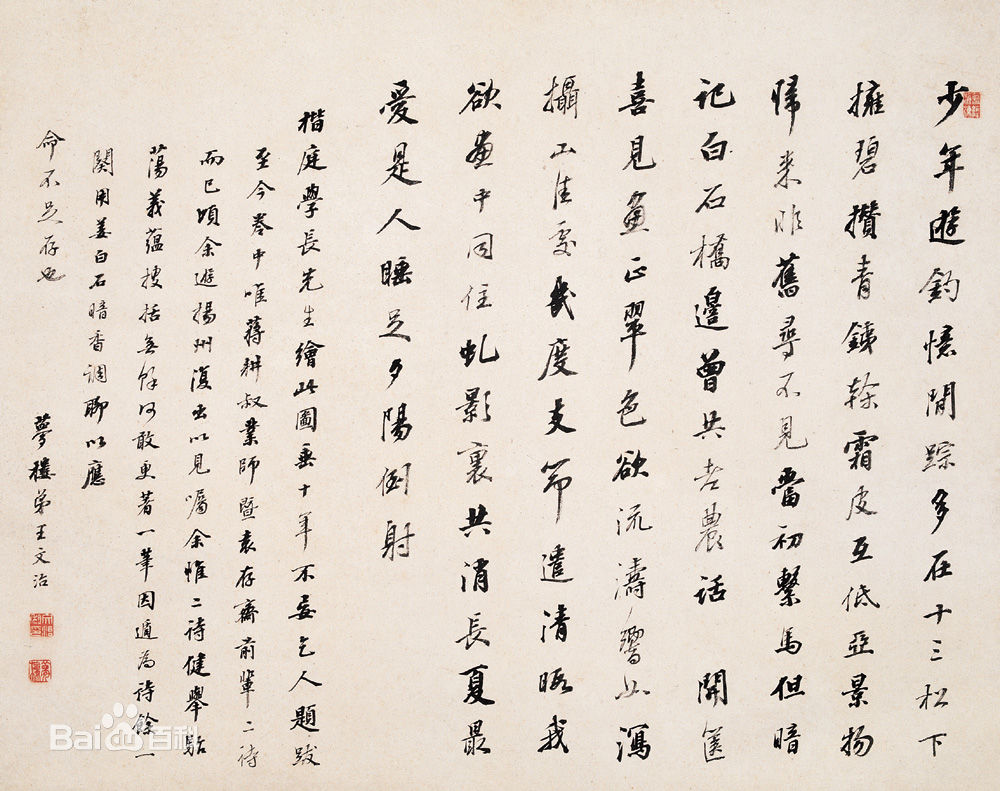 少年遊釣憶閒踪多在十三松下
擁碧攢青錢榦霜皮互低亞景物
歸來昨舊尋不見當初繫馬但暗
記白石橋邊曾共老農話 開篋
喜見畫正翠色欲流濤響如瀉
攝山佳處我度支笻遣清暇我
欲畫中同住虬影裏共消長夏最
愛是人睡足夕陽倒射
楷庭學長先生繪此圖垂十年不妄乞人題跋
至今卷中唯蔣耕叔業師暨袁存齋前輩二詩
而已頃余遊揚州復出以見囑余惟二詩健舉駘
蕩義蘊搜括無餘何敢更著一筆因遁為詩餘一
闋用姜白石暗香調聊以應
命不足存也
夢樓弟王文治
Bai百科